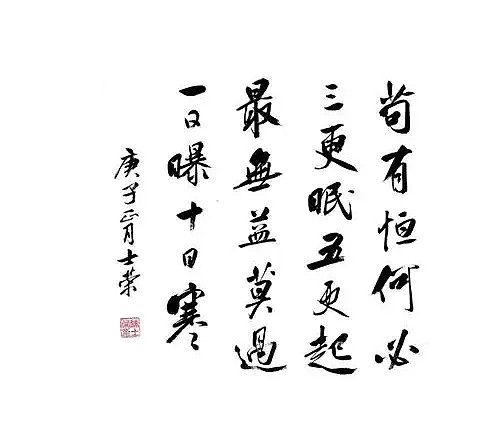 苟有恒何必
三更眠五更起
最無益莫過
一日曝十日寒
庚子正月士荣